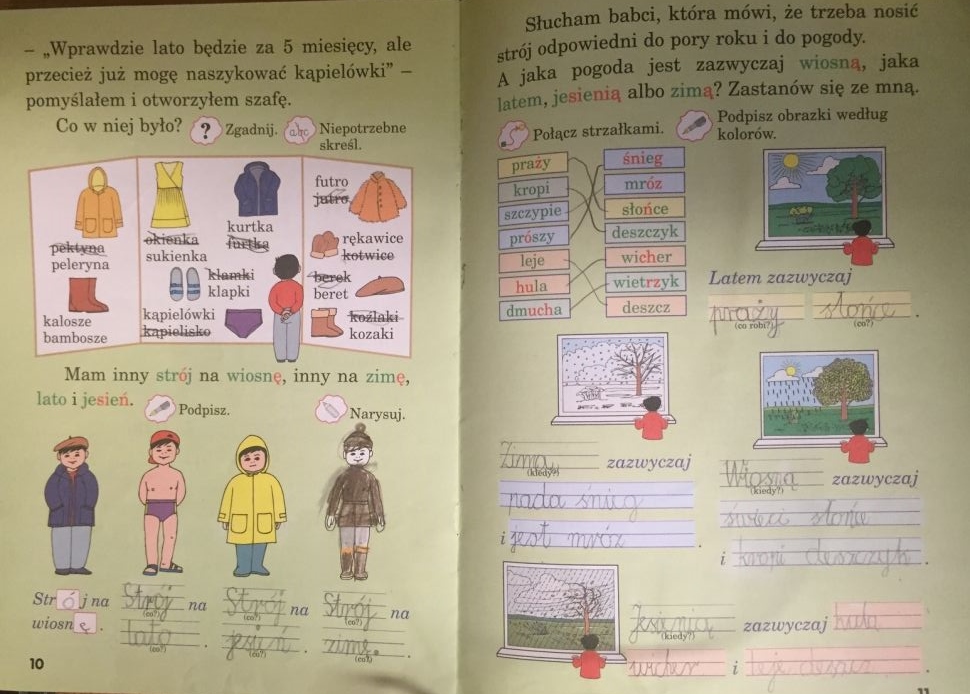 – „Wprawdzie lato będzie za 5 miesięcy, ale
przecież już mogę naszykować kąpielówki” –
pomyślałem i otworzyłem szafę.
Co w niej było? ? Zgadnij. abc Niepotrzebne
skreśl.
pektyna
peleryna
kalosze
bambosze
okienka
sukienka
kurtka
furtka
klamki
klapki
kąpielówki
kąpielisko
futro
jutro
rękawice
kotwice
berek
beret
koźlaki
kozaki
Mam inny strój na wiosnę, inny na zimę,
lato i jesień. Podpisz. Narysuj.
Strój na
wiosnę.
Strój na
(co?)
lato.
(co?)
Strój na
(co?)
jesień.
(co?)
Strój na
(co?)
zimę.
(co?)
10
Słucham babci, która mówi, że trzeba nosić
strój odpowiedni do pory roku i do pogody.
A jaka pogoda jest zazwyczaj wiosną, jaka
latem, jesienią albo zimą? Zastanów się ze mną.
Połącz strzałkami.
Podpisz obrazki według
kolorów.
praży
kropi
szczypie
prószy
leje
hula
dmucha
śnieg
mróz
słońce
deszczyk
wicher
wietrzyk
deszcz
Latem zazwyczaj
praży słońce.
(co robi?) (co?)
Zimą zazwyczaj
(kiedy?)
pada śnieg
i jest mróz.
Wiosną zazwyczaj
(kiedy?)
świeci słońce
i kropi deszczyk.
Jesienią zazwyczaj hula
(kiedy?)
wicher i leje deszcz.
11